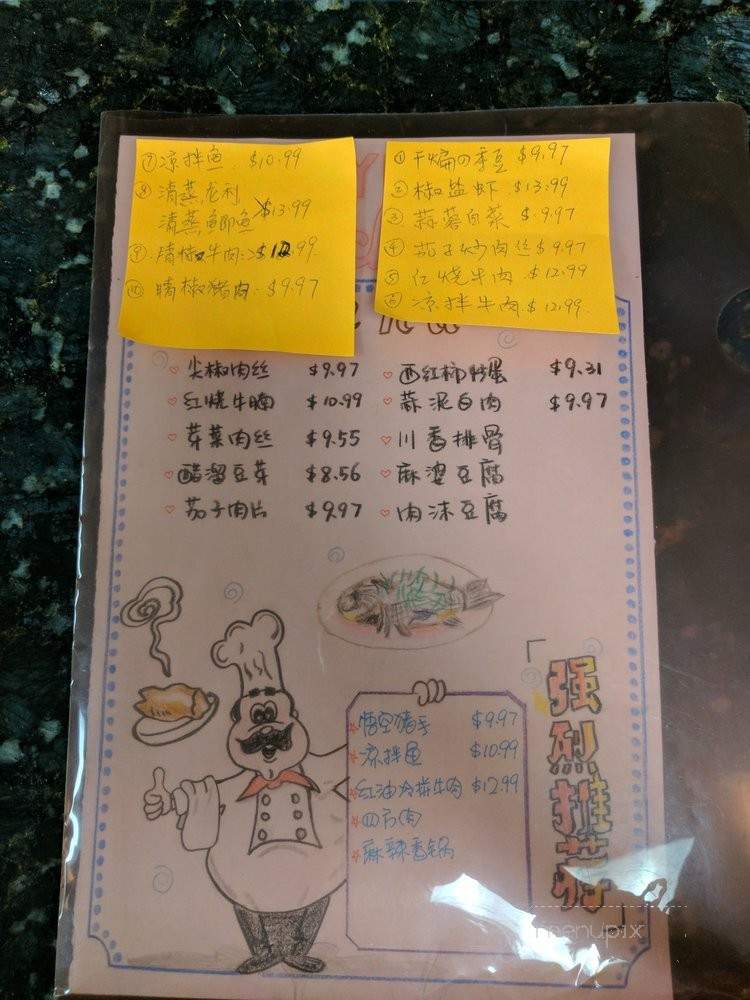 ⑦凉拌鱼 $10.99
⑧清蒸龙利
清蒸鲫鱼 $13.99
⑨ 牛肉 $12.99
⑩ 椒猪肉 $9.97
①干煸四季豆 $9.97
②椒盐虾 $13.99
③蒜蓉白菜 $9.97
④茄子炒肉丝 $9.97
⑤红烧牛肉 $12.99
⑥凉拌牛肉 $12.99
尖椒肉丝 $9.97
红烧牛腩 $10.99
芽菜肉丝 $9.55
醋溜豆芽 $8.56
茄子肉片 $9.97
西红柿炒蛋 $9.31
蒜泥白肉 $9.97
川香排骨
麻婆豆腐
肉沫豆腐
「强烈推荐」
悟空猪手 $9.97
凉拌鱼 $10.99
红油冷拌牛肉 $12.99
四方肉
麻辣香锅
menupix